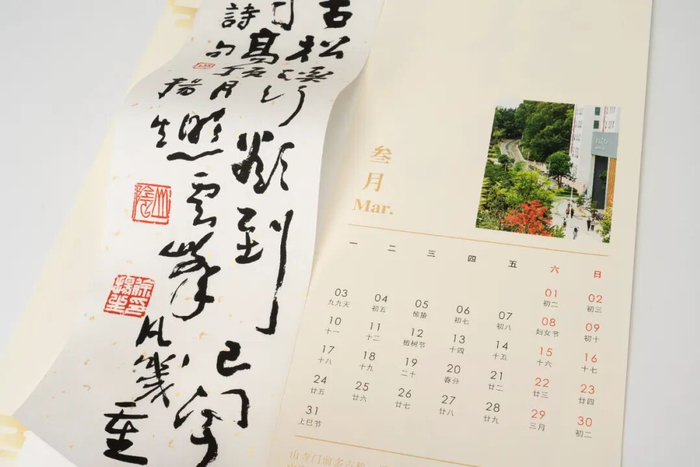 古松溪行欲到已闻
高顶月照雲峰凡幾重
詩句
叁
月
Mar.
一 二 三 四 五 六 日
01 02
初二 初三
03 04 05 06 07 08 09
九九天 初五 惊蛰 初七 初八 妇女节 初十
10 11 12 13 14 15 16
十一 十二 植树节 十四 十五 十六 十七
17 18 19 20 21 22 23
十八 十九 二十 春分 廿二 廿三 廿四
24 25 26 27 28 29 30
廿五 廿六 廿七 廿八 廿九 三月 初二
31
上巳节
山寺门前多古松